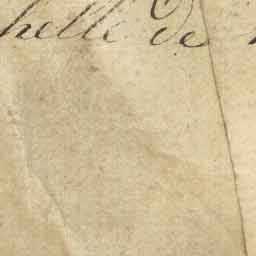 helle de